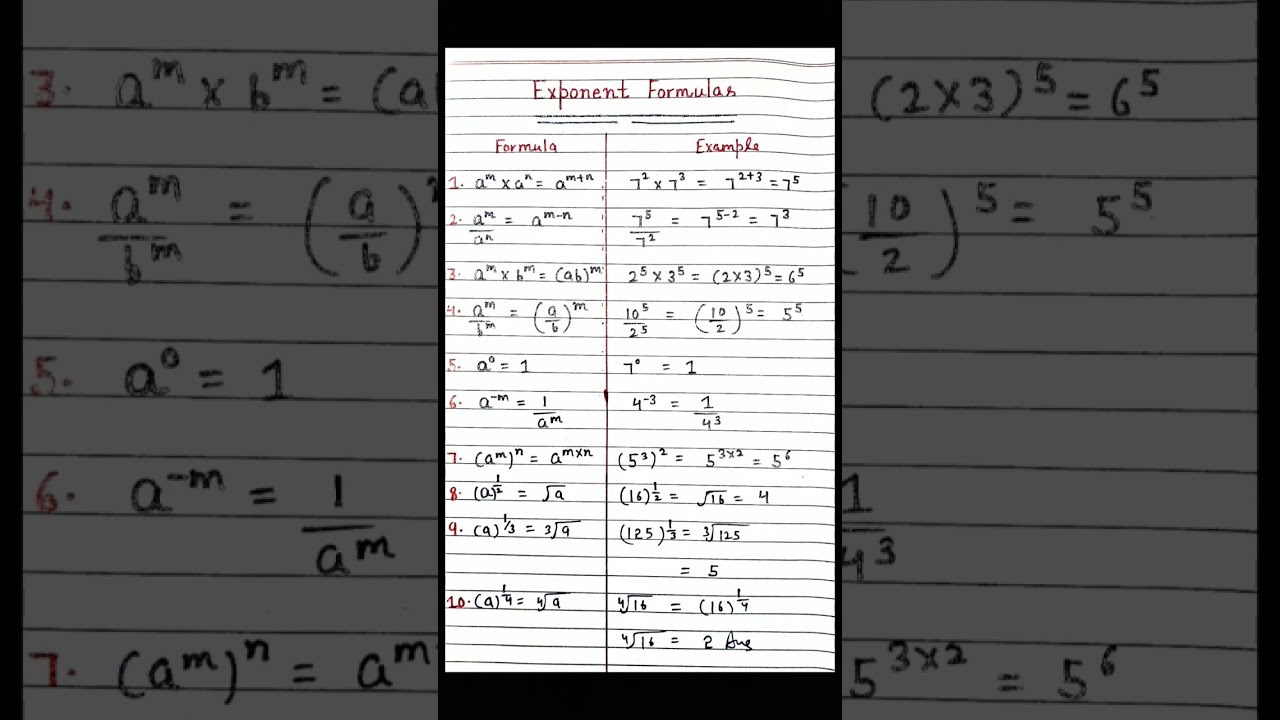 Exponent Formulas
Formula Example
1. aᵐ × aⁿ = aᵐ⁺ⁿ 7² × 7³ = 7²⁺³ = 7⁵
2. aᵐ/aⁿ = aᵐ⁻ⁿ 7⁵/7² = 7⁵⁻² = 7³
3. aᵐ × bᵐ = (ab)ᵐ 2⁵ × 3⁵ = (2×3)⁵ = 6⁵
4. aᵐ/bᵐ = (a/b)ᵐ 10⁵/2⁵ = (10/2)⁵ = 5⁵
5. a⁰ = 1 7⁰ = 1
6. a⁻ᵐ = 1/aᵐ 4⁻³ = 1/4³
7. (aᵐ)ⁿ = aᵐˣⁿ (5³)² = 5³ˣ² = 5⁶
8. (a)^½ = √a (16)^½ = √16 = 4
9. (a)^⅓ = ∛a (125)^⅓ = ∛125
= 5
10. (a)^¼ = ∜a ∜16 = (16)^¼
∜16 = 2 Ans
3. aᵐ × bᵐ = (a (2×3)⁵ = 6⁵
4. aᵐ/bᵐ = (a/b) 10/2)⁵ = 5⁵
5. a⁰ = 1
6. a⁻ᵐ = 1/aᵐ 1/4³
7. (aᵐ)ⁿ = aᵐ 5³ˣ² = 5⁶